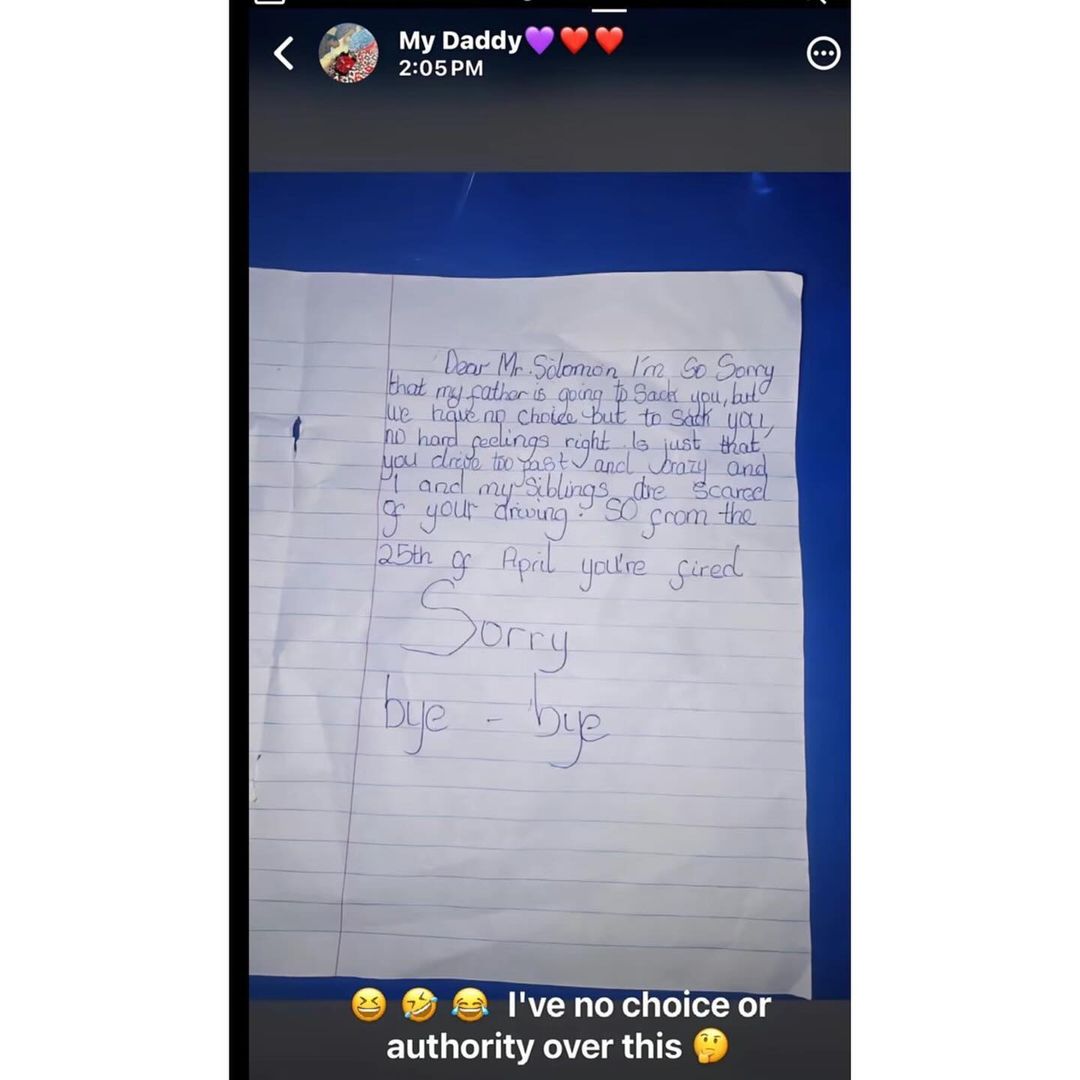 My Daddy💜❤️❤️
2:05 PM
Dear Mr. Solomon I'm So Sorry
that my father is going to Sack you, but
we have no choice but to Sack you,
no hard feelings right. Is just that
you drive too fast and crazy and
I and my Siblings are scared
of your driving. SO from the
25th of April you're fired
Sorry
bye - bye
😆 🤣 😂 I've no choice or
authority over this 🤔